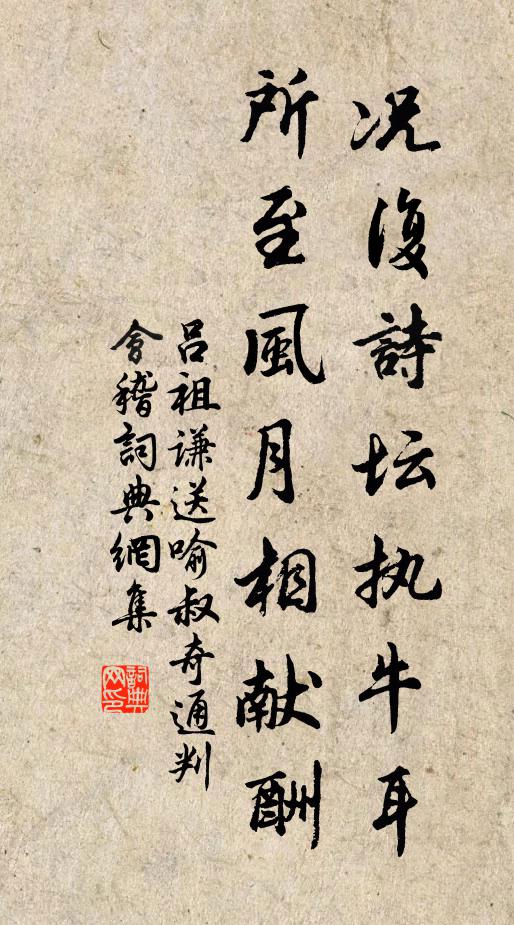 况復詩坛执牛耳
所至風月相献酬
吕祖谦送喻叔奇通判
會稽詞典網集
詞典
网印